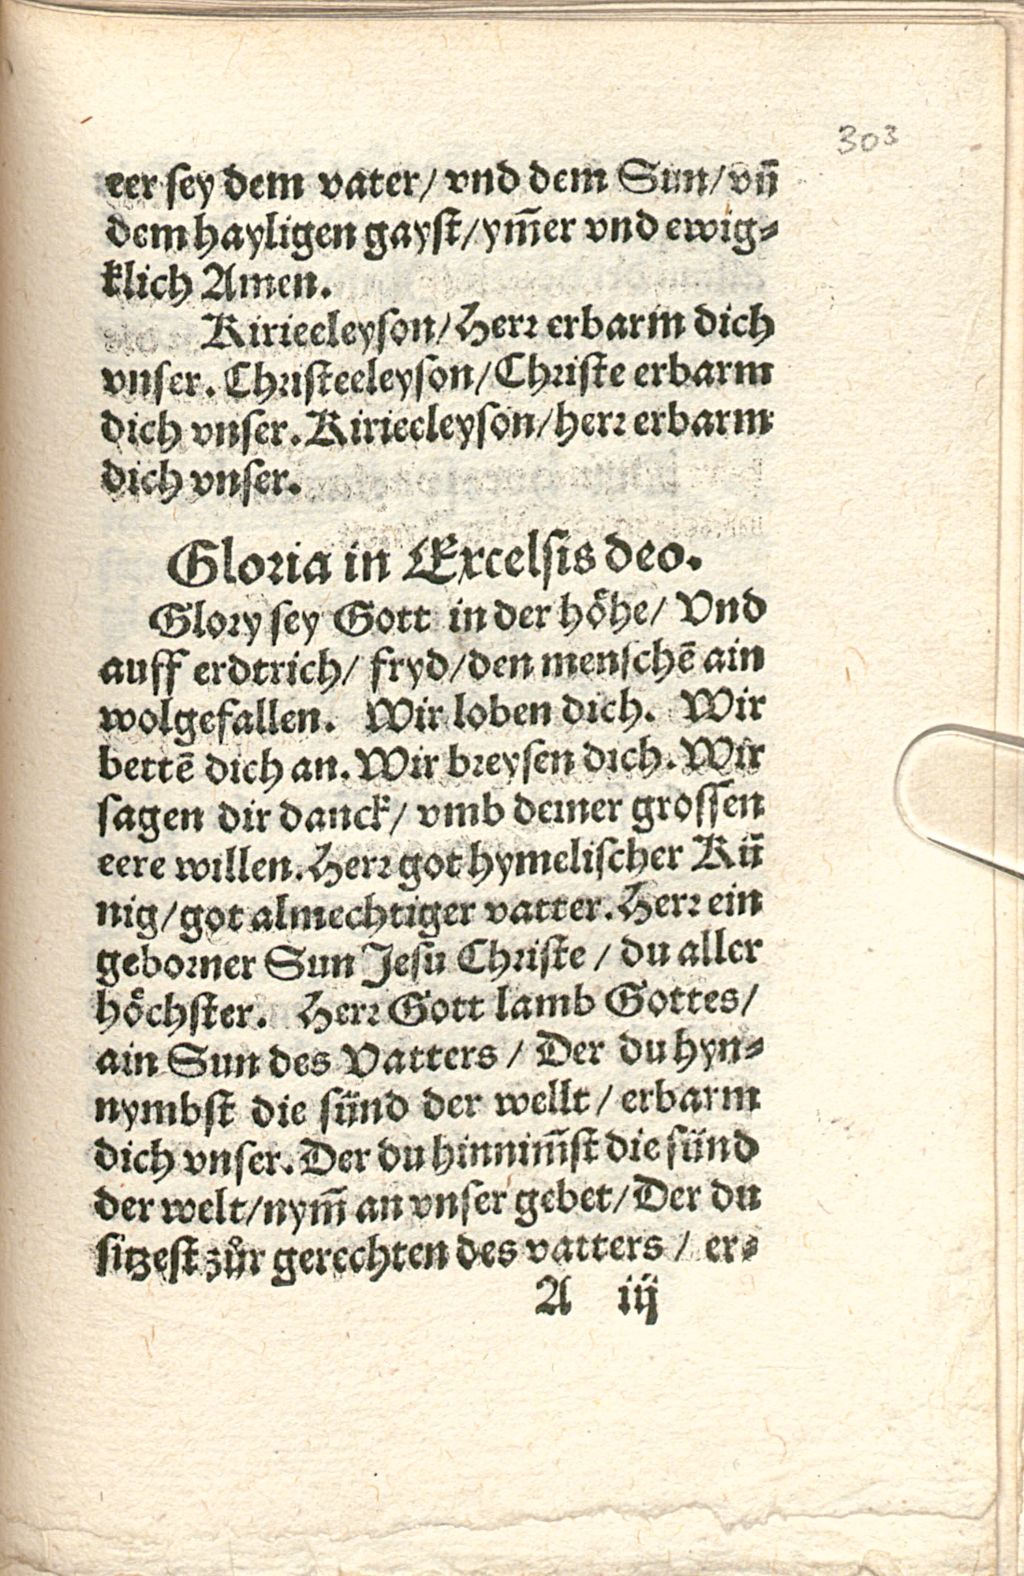 303
eer sey dem vater/ vnd dem Sun/ vn̄
dem hayligen gayst/ ym̄er vnd ewig⸗
klich Amen.
Kirieeleyson/ Herr erbarm dich
vnser. Christeeleyson/ Christe erbarm
dich vnser. Kirieeleyson/ herr erbarm
dich vnser.
Gloria in Excelsis deo.
Glory sey Gott in der hoͤhe/ Vnd
auff erdtrich/ fryd/ den menschē ain
wolgefallen. Wir loben dich. Wir
bettē dich an. Wir breysen dich. Wir
sagen dir danck/ vmb deiner grossen
eere willen. Herr got hymelischer Kǖ
nig/ got almechtiger vatter. Herr ein
geborner Sun Jesu Christe / du aller
hoͤchster. Herr Gott lamb Gottes/
ain Sun des Vatters / Der du hyn⸗
nymbst die sünd der wellt/ erbarm
dich vnser. Der du hinnim̄st die sünd
der welt/ nym̄ an vnser gebet/ Der du
sitzest zůr gerechten des vatters / er⸗
A iij